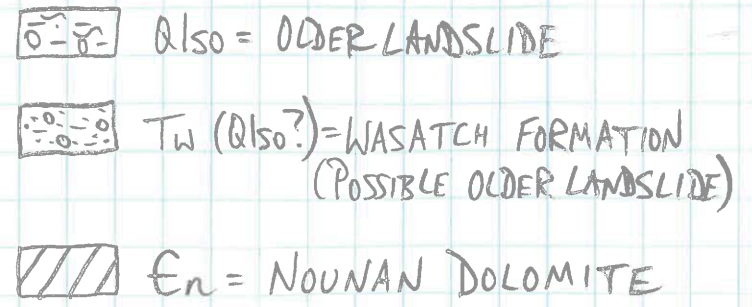 Qlso = OLDER LANDSLIDE
Tw (Qlso?) = WASATCH FORMATION
(POSSIBLE OLDER LANDSLIDE)
Ꞓn = NOUNAN DOLOMITE